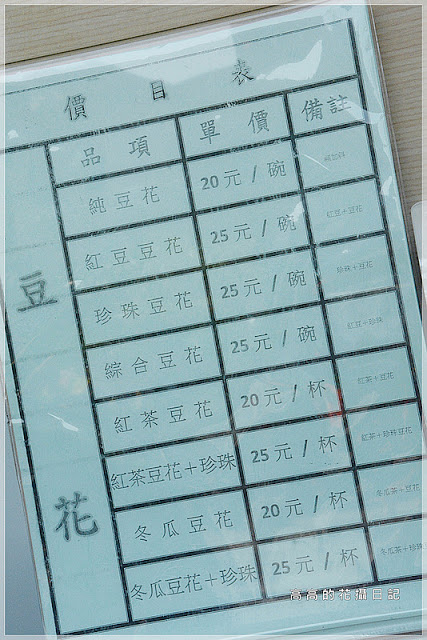 價目表
品項 單價 備註
豆花
純豆花 20元/碗
紅豆豆花 25元/碗 紅豆+豆花
珍珠豆花 25元/碗 珍珠+豆花
綜合豆花 25元/碗 紅豆+珍珠
紅茶豆花 20元/杯 紅茶+豆花
紅茶豆花+珍珠 25元/杯 紅茶+珍珠豆花
冬瓜豆花 20元/杯 冬瓜茶+豆花
冬瓜豆花+珍珠 25元/杯 冬瓜茶+珍珠
高高的花攝日記